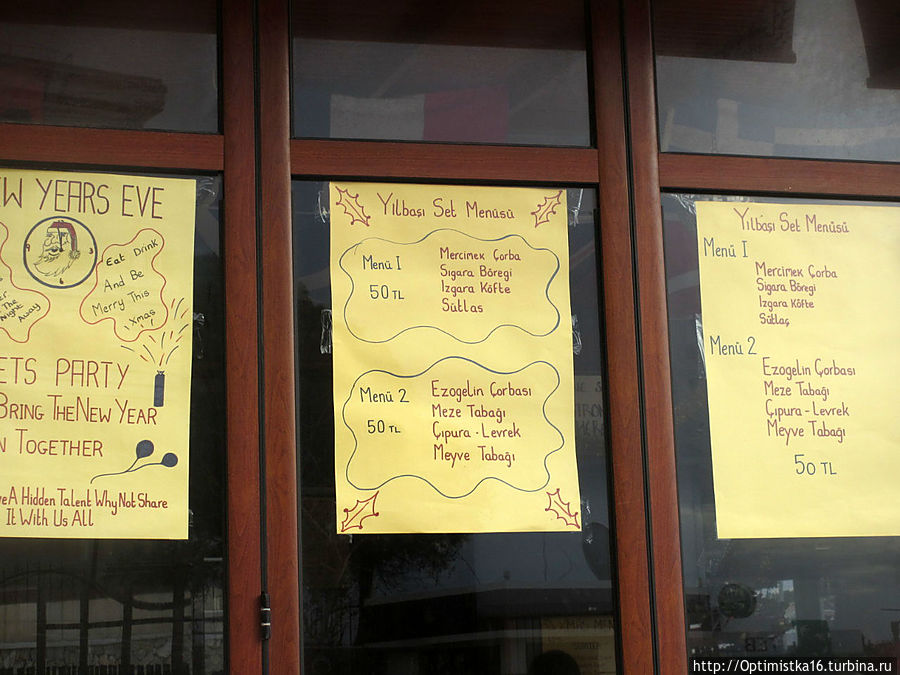 YEARS EVE
Eat Drink
And Be
Merry This
Xmas
The
Night
Away
PARTY
BRING THE NEW YEAR
TOGETHER
A HIDDEN TALENT WHY NOT SHARE
IT WITH US ALL
Yılbaşı Set Menüsü
Menü I
50 TL
Mercimek Çorba
Sıgara Böregi
Izgara Köfte
Sütlas
Menü 2
50 TL
Ezogelin Çorbası
Meze Tabağı
Çıpura - Levrek
Meyve Tabağı
Yılbaşı Set Menüsü
Menü I
Mercimek Çorba
Sıgara Böregi
Izgara Köfte
Sütlaç
Menü 2
Ezogelin Çorbası
Meze Tabağı
Çıpura - Levrek
Meyve Tabağı
50 TL
http://Optimistka16.turbina.ru